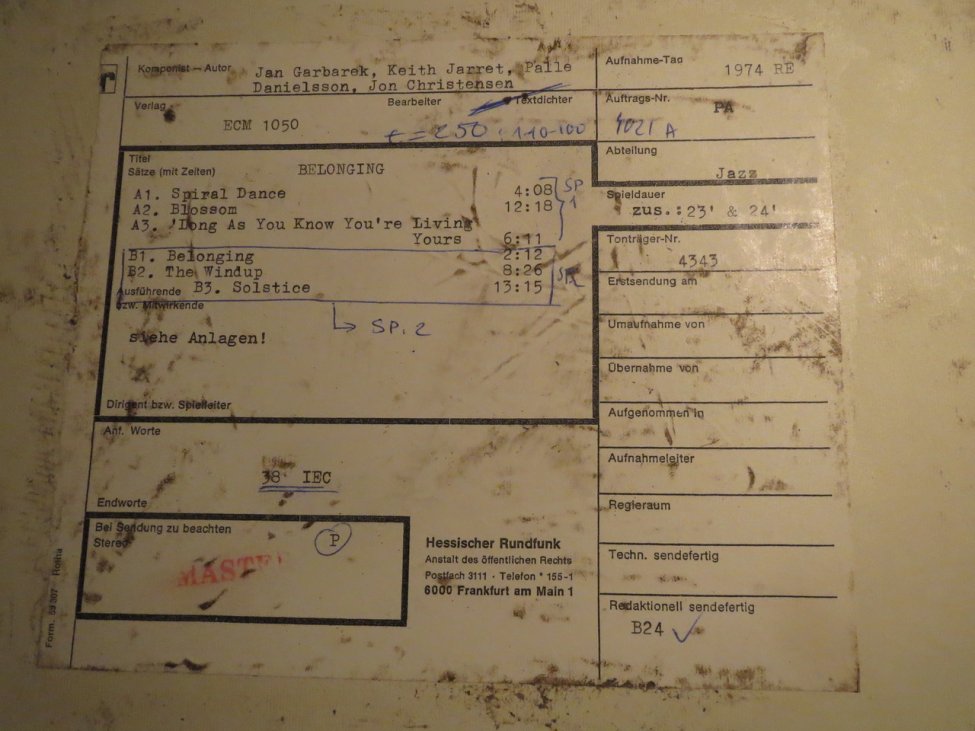 Komponist — Autor
Jan Garbarek, Keith Jarret, Palle
Danielsson, Jon Christensen
Aufnahme-Tag
1974 RE
Verlag
Bearbeiter
Textdichter
ECM 1050
Auftrags-Nr.
PA
4021 A
Titel
Sätze (mit Zeiten)
BELONGING
Abteilung
Jazz
A1. Spiral Dance 4:08
A2. Blossom 12:18
A3. 'Long As You Know You're Living
Yours 6:11
SP
1
Spieldauer
zus.: 23' & 24'
B1. Belonging 2:12
B2. The Windup 8:26
Ausführende B3. Solstice 13:15
bzw. Mitwirkende
SP. 2
siehe Anlagen!
Tonträger-Nr.
4343
Erstsendung am
Umaufnahme von
Übernahme von
Dirigent bzw. Spielleiter
Aufgenommen in
Anf. Worte
Aufnahmeleiter
38 IEC
Endworte
Regieraum
Bei Sendung zu beachten
Stereo
P
Hessischer Rundfunk
Anstalt des öffentlichen Rechts
Postfach 3111 · Telefon * 155-1
6000 Frankfurt am Main 1
Techn. sendefertig
Redaktionell sendefertig
B24
Rotha